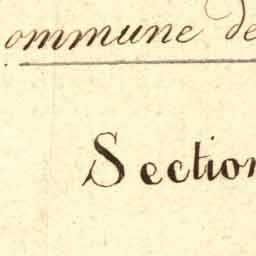 ommune de
Section